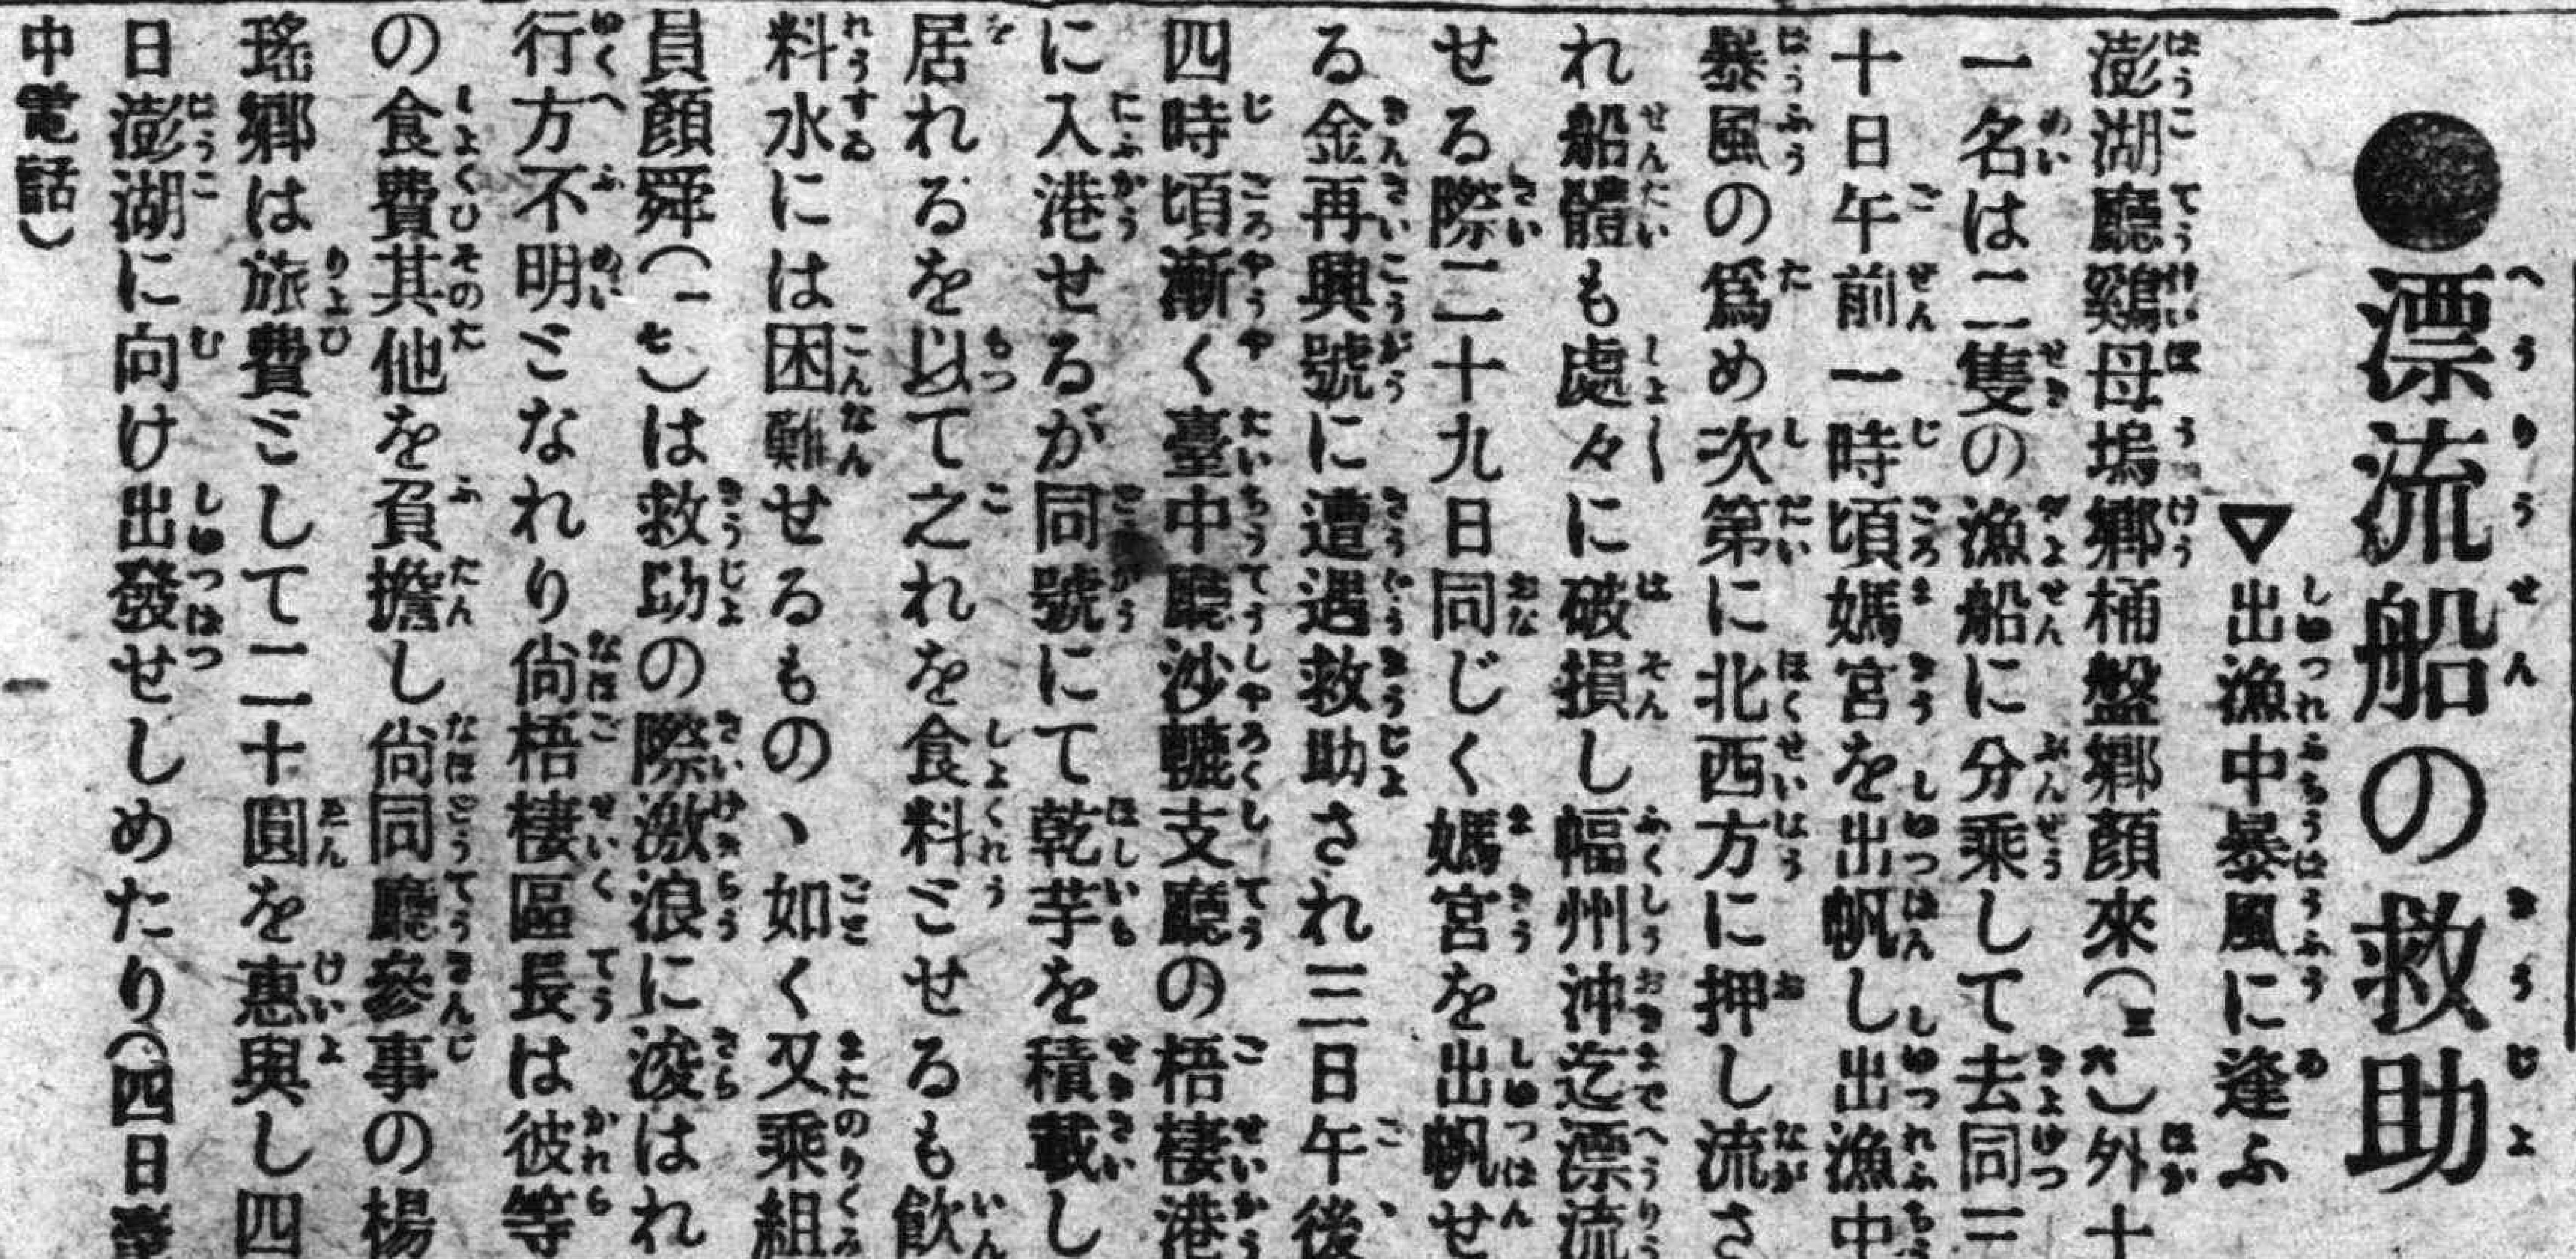 ●漂流船の救助
▽出漁中暴風に逢ふ
澎湖廳鷄母塢鄕桶盤鄕顏來(三六)外十
一名は二隻の漁船に分乘して去同三
十日午前一時頃媽宮を出帆し出漁中
暴風の爲め次第に北西方に押し流さ
れ船體も處々に破損し幅州沖迄漂流
せる際二十九日同じく媽宮を出帆せ
る金再興號に遭遇救助され三日午後
四時頃漸く臺中廳沙轆支廳の梧棲港
に入港せるが同號にて乾芋を積載し
居れるを以て之れを食料ミせるも飮
料水には困難せるもの丶如く又乘組
員顏舜(一七)は救助の際激浪に浚はれ
行方不明ミなれり尙梧棲區長は彼等
の食費其他を負擔し尙同廳參事の楊
瑤鄕は旅費ミして二十圓を惠與し四
日澎湖に向け出發せしめたり(四日臺
中電話)